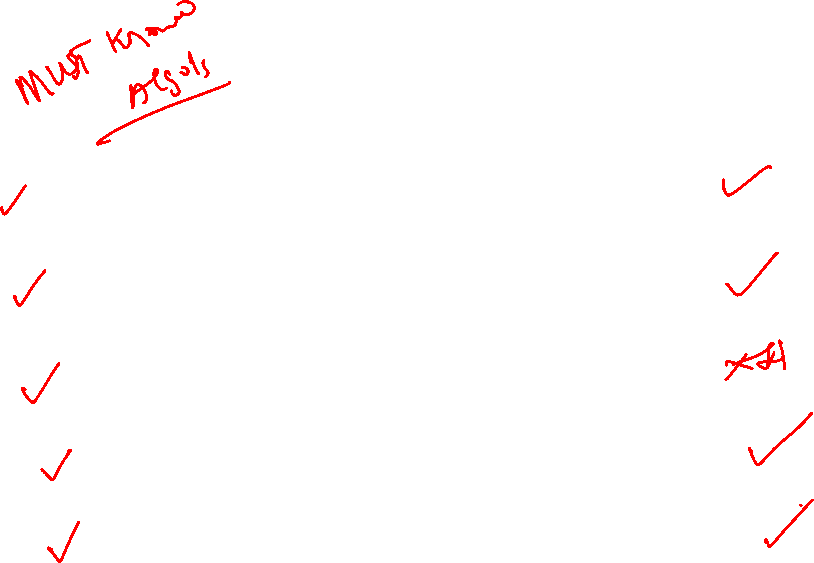 MUST Know
Algo's